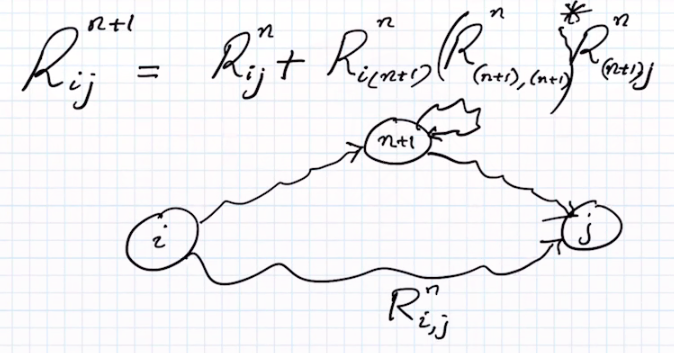 R_{ij}^{n+1} = R_{ij}^{n} + R_{i(n+1)}^{n} (R_{(n+1),(n+1)}^{n})^{*} R_{(n+1)j}^{n}
n+1
i
j
R_{i,j}^{n}